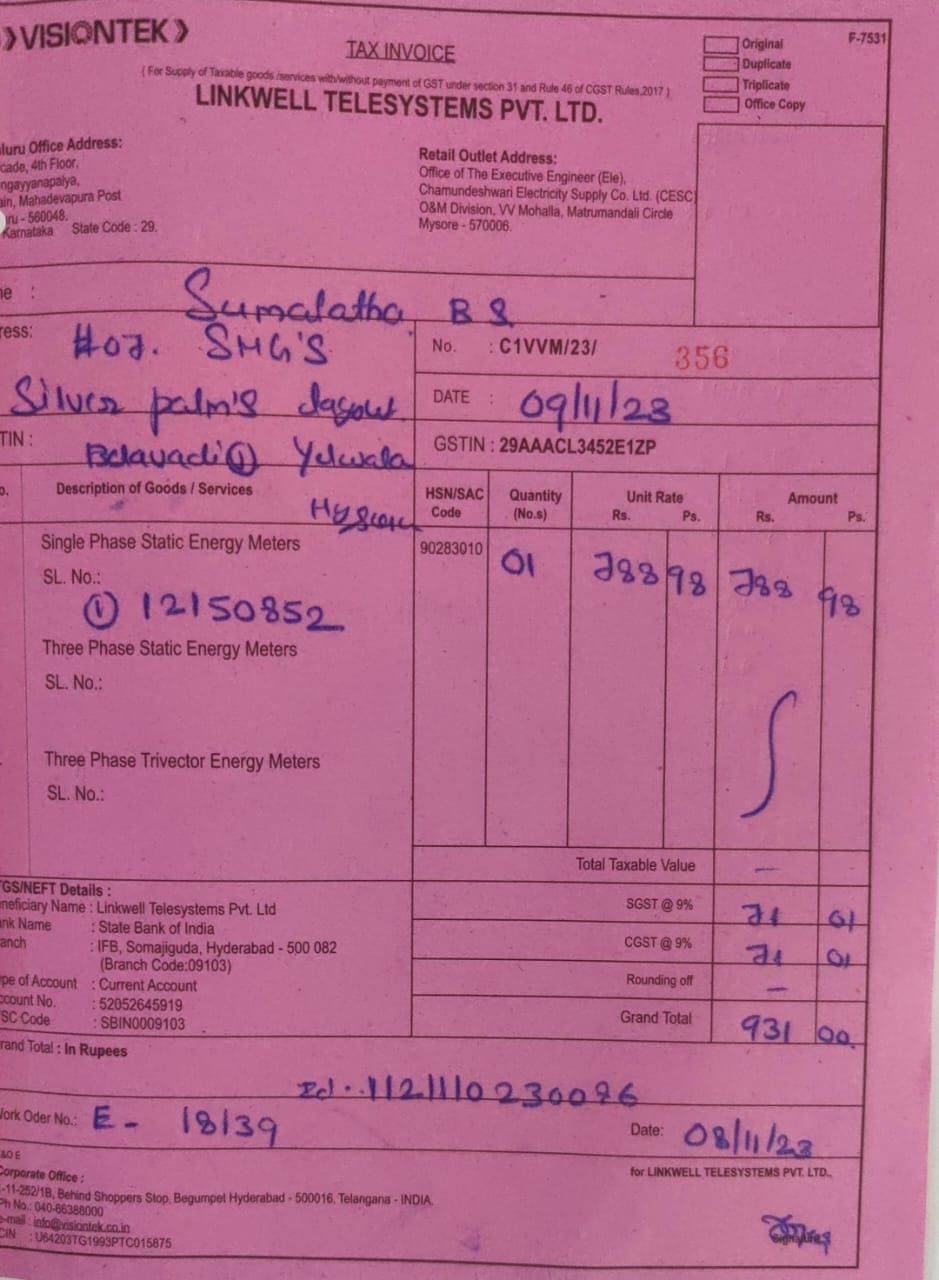 VISIONTEK
TAX INVOICE
F-7531
Original
Duplicate
Triplicate
Office Copy
( For Supply of Taxable goods /services with/without payment of GST under section 31 and Rule 46 of CGST Rules,2017 )
LINKWELL TELESYSTEMS PVT. LTD.
luru Office Address:
cade, 4th Floor,
ngayyanapalya,
ain, Mahadevapura Post
ru - 560048.
Karnataka State Code : 29.
Retail Outlet Address:
Office of The Executive Engineer (Ele),
Chamundeshwari Electricity Supply Co. Ltd. (CESC)
O&M Division, VV Mohalla, Matrumandali Circle
Mysore - 570006.
me : Sumalatha B S
ress: #07. SMG'S
Silver palm's layout
TIN : Belavadi Yelwala
No. : C1VVM/23/ 356
DATE : 09/11/23
GSTIN : 29AAACL3452E1ZP
o. Description of Goods / Services HSN/SAC Code Quantity (No.s) Unit Rate Rs. Ps. Amount Rs. Ps.
Single Phase Static Energy Meters 90283010 01 788 98 788 98
SL. No.:
① 12150852
Three Phase Static Energy Meters
SL. No.:
Three Phase Trivector Energy Meters
SL. No.:
Total Taxable Value —
SGST @ 9% 71 01
CGST @ 9% 71 01
Rounding off —
Grand Total 931 00
GS/NEFT Details :
neficiary Name : Linkwell Telesystems Pvt. Ltd
ank Name : State Bank of India
anch : IFB, Somajiguda, Hyderabad - 500 082
(Branch Code:09103)
pe of Account : Current Account
ccount No. : 52052645919
SC Code : SBIN0009103
rand Total : In Rupees
Work Oder No.: E - 18139
Date: 08/11/23
&O E
Corporate Office :
-11-252/1B, Behind Shoppers Stop, Begumpet Hyderabad - 500016, Telangana - INDIA.
Ph No.: 040-66388000
e-mail : info@visiontek.co.in
CIN : U64203TG1993PTC015875
for LINKWELL TELESYSTEMS PVT. LTD.,
Signature